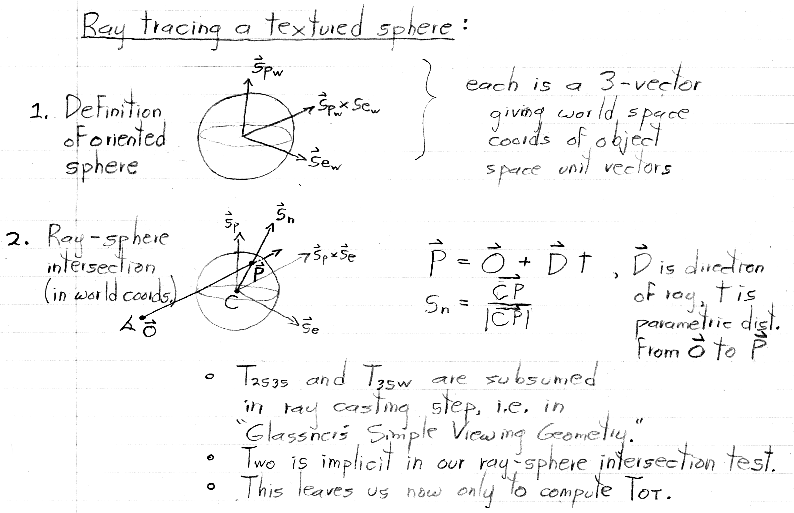 Ray tracing a textured sphere:
S⃗pw
1. Definition of oriented sphere
S⃗pw × S⃗ew
S⃗ew
each is a 3-vector
giving world space
coords of object
space unit vectors
2. Ray-sphere
intersection
(in world coords)
S⃗p
S⃗n
P⃗
S⃗p × S⃗e
C
S⃗e
O⃗
P⃗ = O⃗ + D⃗ t , D⃗ is direction
of ray, t is
parametric dist.
from O⃗ to P⃗
Sn = CP⃗ / |CP⃗|
° T2S3S and T3SW are subsumed
in ray casting step, i.e. in
"Glassner's Simple Viewing Geometry."
° Two is implicit in our ray-sphere intersection test.
° This leaves us now only to compute TOT.